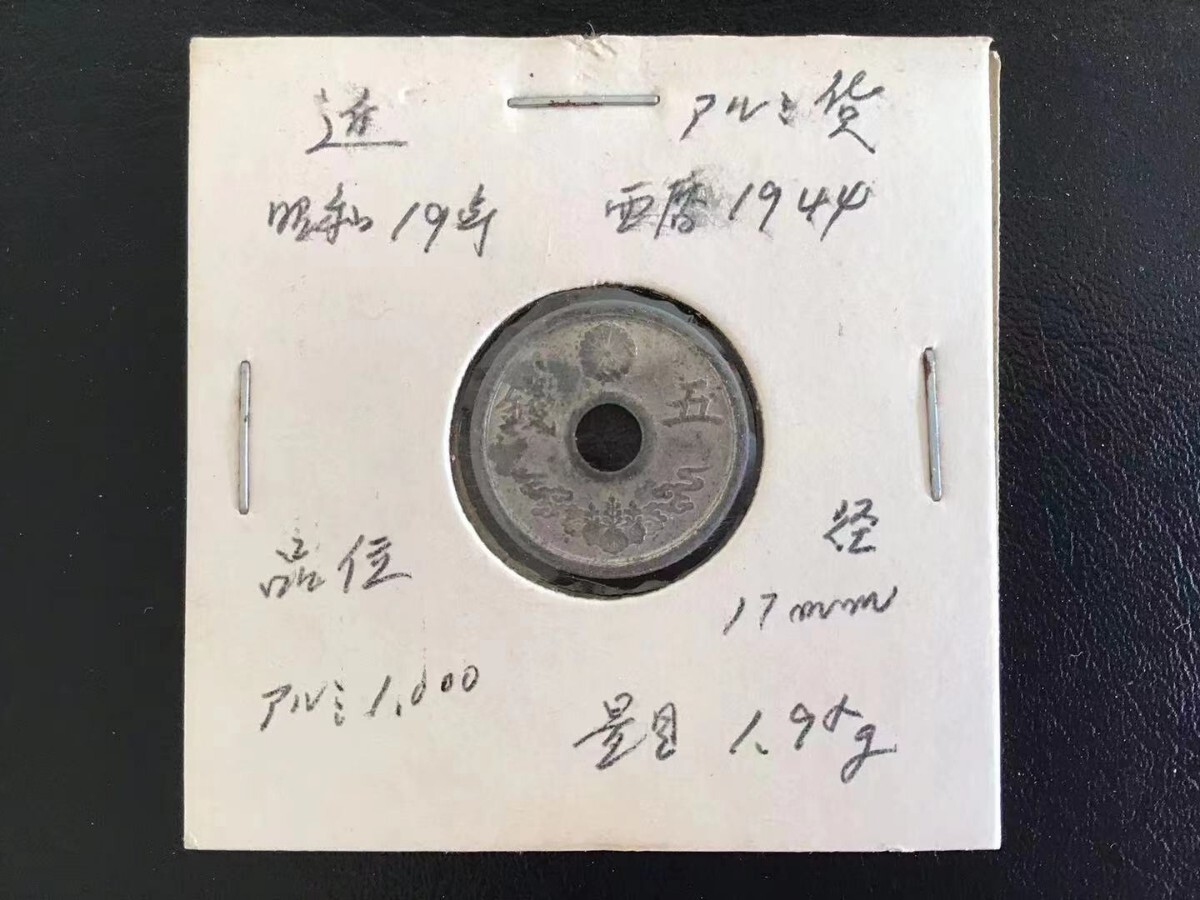 アルミ貨
昭和19年 西暦1944
五錢
品位 径
17mm
アルミ1.000
量目 1.95g